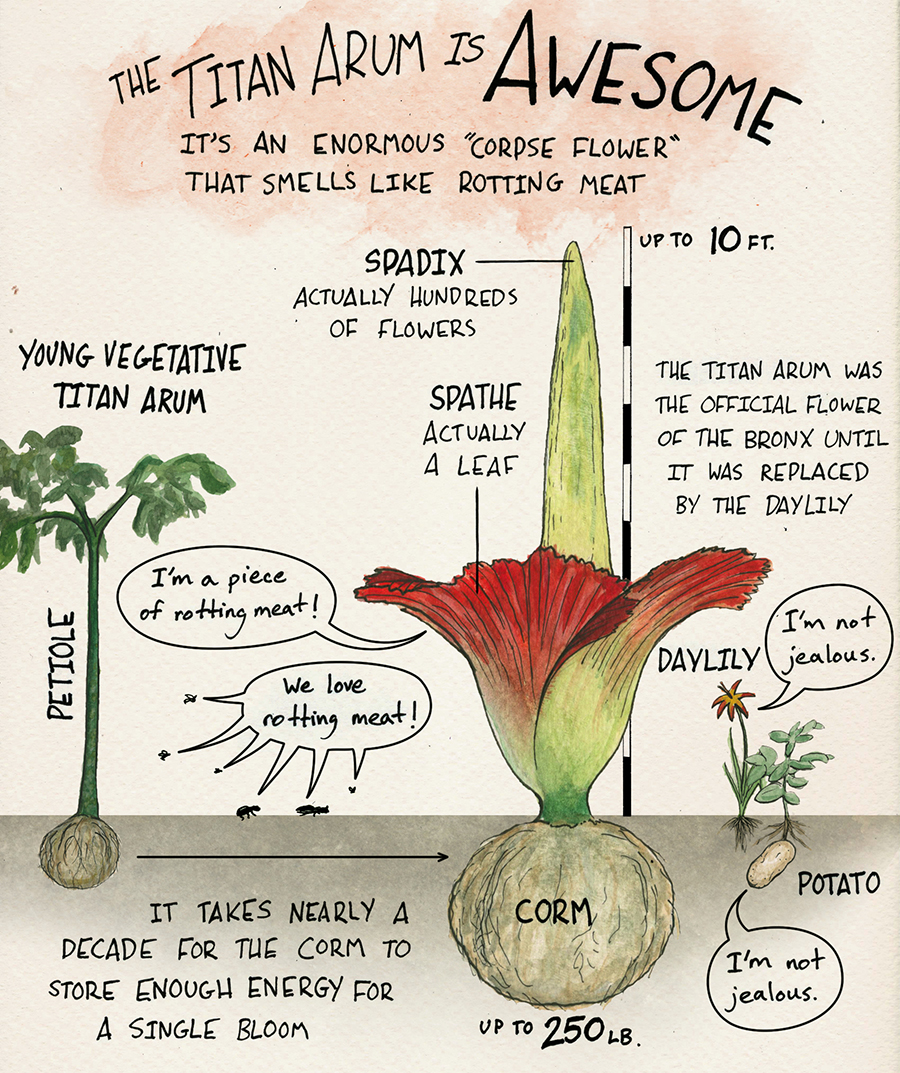 THE TITAN ARUM IS AWESOME
IT'S AN ENORMOUS "CORPSE FLOWER"
THAT SMELLS LIKE ROTTING MEAT
UP TO 10 FT.
SPADIX
ACTUALLY HUNDREDS
OF FLOWERS
YOUNG VEGETATIVE
TITAN ARUM
SPATHE
ACTUALLY
A LEAF
THE TITAN ARUM WAS
THE OFFICIAL FLOWER
OF THE BRONX UNTIL
IT WAS REPLACED
BY THE DAYLILY
I'm a piece
of rotting meat!
PETIOLE
We love
rotting meat!
DAYLILY
I'm not
jealous.
POTATO
I'm not
jealous.
CORM
UP TO 250 LB.
IT TAKES NEARLY A
DECADE FOR THE CORM TO
STORE ENOUGH ENERGY FOR
A SINGLE BLOOM